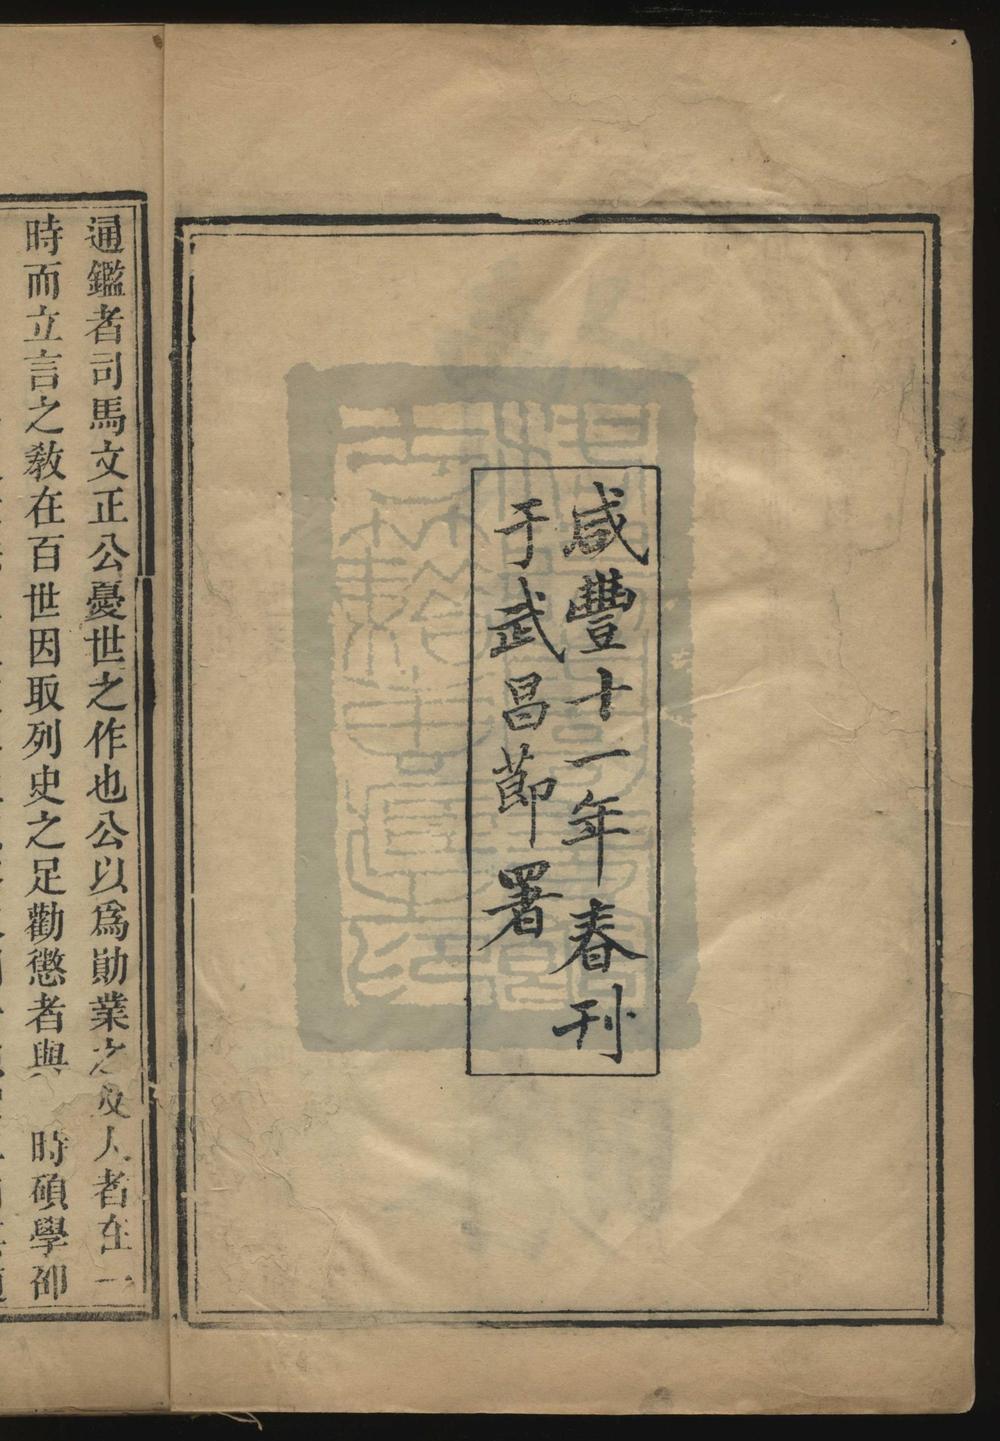 咸豐十一年春刊
于武昌節署
通鑑者司馬文正公憂世之作也公以爲勛業之及人者在一
時而立言之敎在百世因取列史之足勸懲者與 時碩學卲